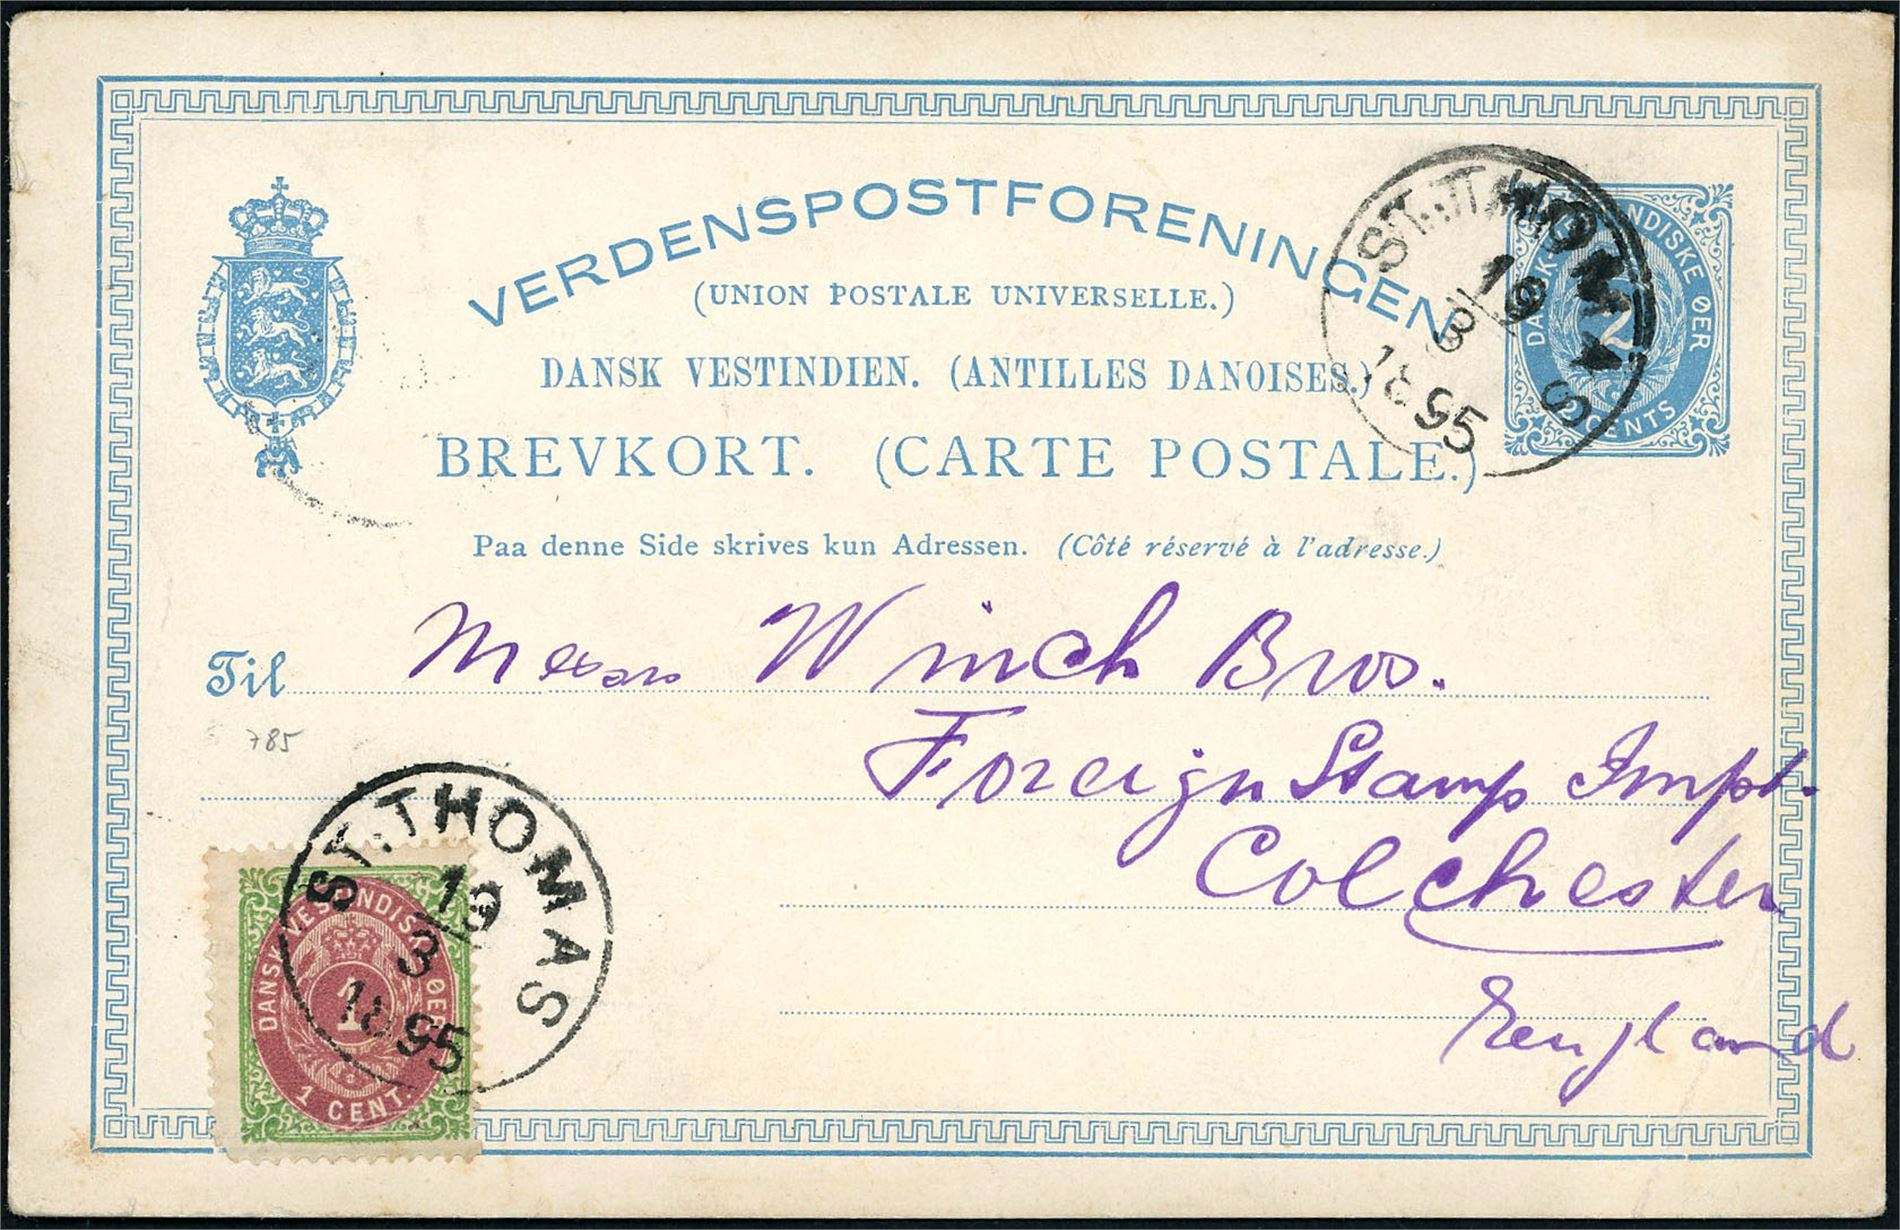 VERDENSPOSTFORENINGEN
(UNION POSTALE UNIVERSELLE.)
DANSK VESTINDIEN. (ANTILLES DANOISES.)
BREVKORT. (CARTE POSTALE.)
Paa denne Side skrives kun Adressen. (Côté réservé à l'adresse.)
ST: THOMAS
19
3
1895
DANSK-VESTINDISKE ØER
2
2 CENTS
Til Messrs Winch Bros.
785
Foreign Stamp Impt.
Colchester
England
ST: THOMAS
19
3
1895
DANSK VESTINDISKE ØER
1
1 CENT.